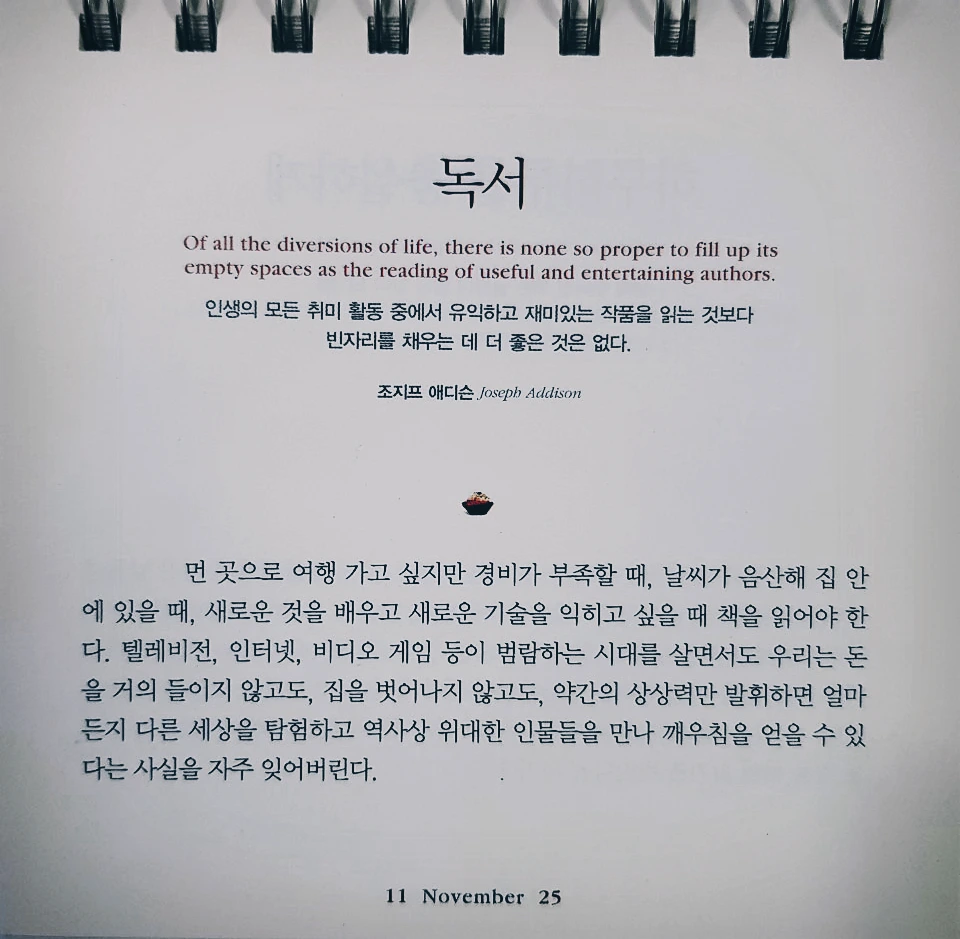 독서
Of all the diversions of life, there is none so proper to fill up its
empty spaces as the reading of useful and entertaining authors.
인생의 모든 취미 활동 중에서 유익하고 재미있는 작품을 읽는 것보다
빈자리를 채우는 데 더 좋은 것은 없다.
조지프 애디슨 Joseph Addison
먼 곳으로 여행 가고 싶지만 경비가 부족할 때, 날씨가 음산해 집 안
에 있을 때, 새로운 것을 배우고 새로운 기술을 익히고 싶을 때 책을 읽어야 한
다. 텔레비전, 인터넷, 비디오 게임 등이 범람하는 시대를 살면서도 우리는 돈
을 거의 들이지 않고도, 집을 벗어나지 않고도, 약간의 상상력만 발휘하면 얼마
든지 다른 세상을 탐험하고 역사상 위대한 인물들을 만나 깨우침을 얻을 수 있
다는 사실을 자주 잊어버린다.
11 November 25